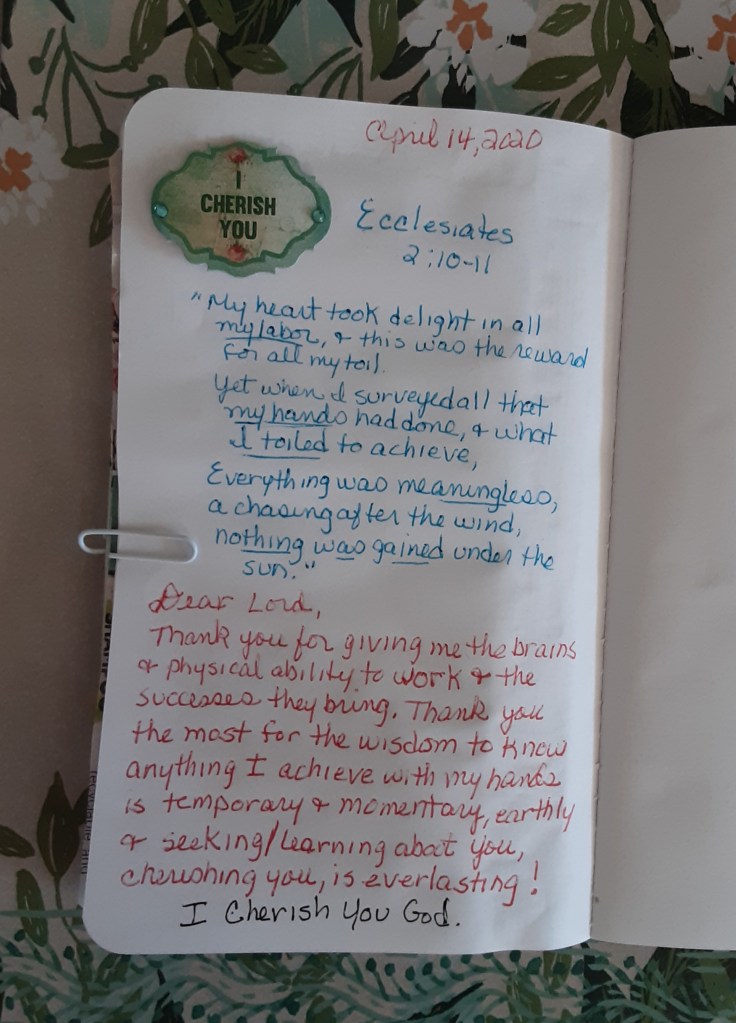 April 14, 2020
I
CHERISH
YOU
Ecclesiates
2:10-11
"My heart took delight in all
my labor, & this was the reward
for all my toil.
Yet when I surveyed all that
my hands had done, & what
I toiled to achieve,
Everything was meaningless,
a chasing after the wind,
nothing was gained under the
sun."
Dear Lord,
Thank you for giving me the brains
& physical ability to work & the
successes they bring. Thank you
the most for the wisdom to know
anything I achieve with my hands
is temporary & momentary, earthly
& seeking/learning about you,
cherishing you, is everlasting!
I Cherish You God.